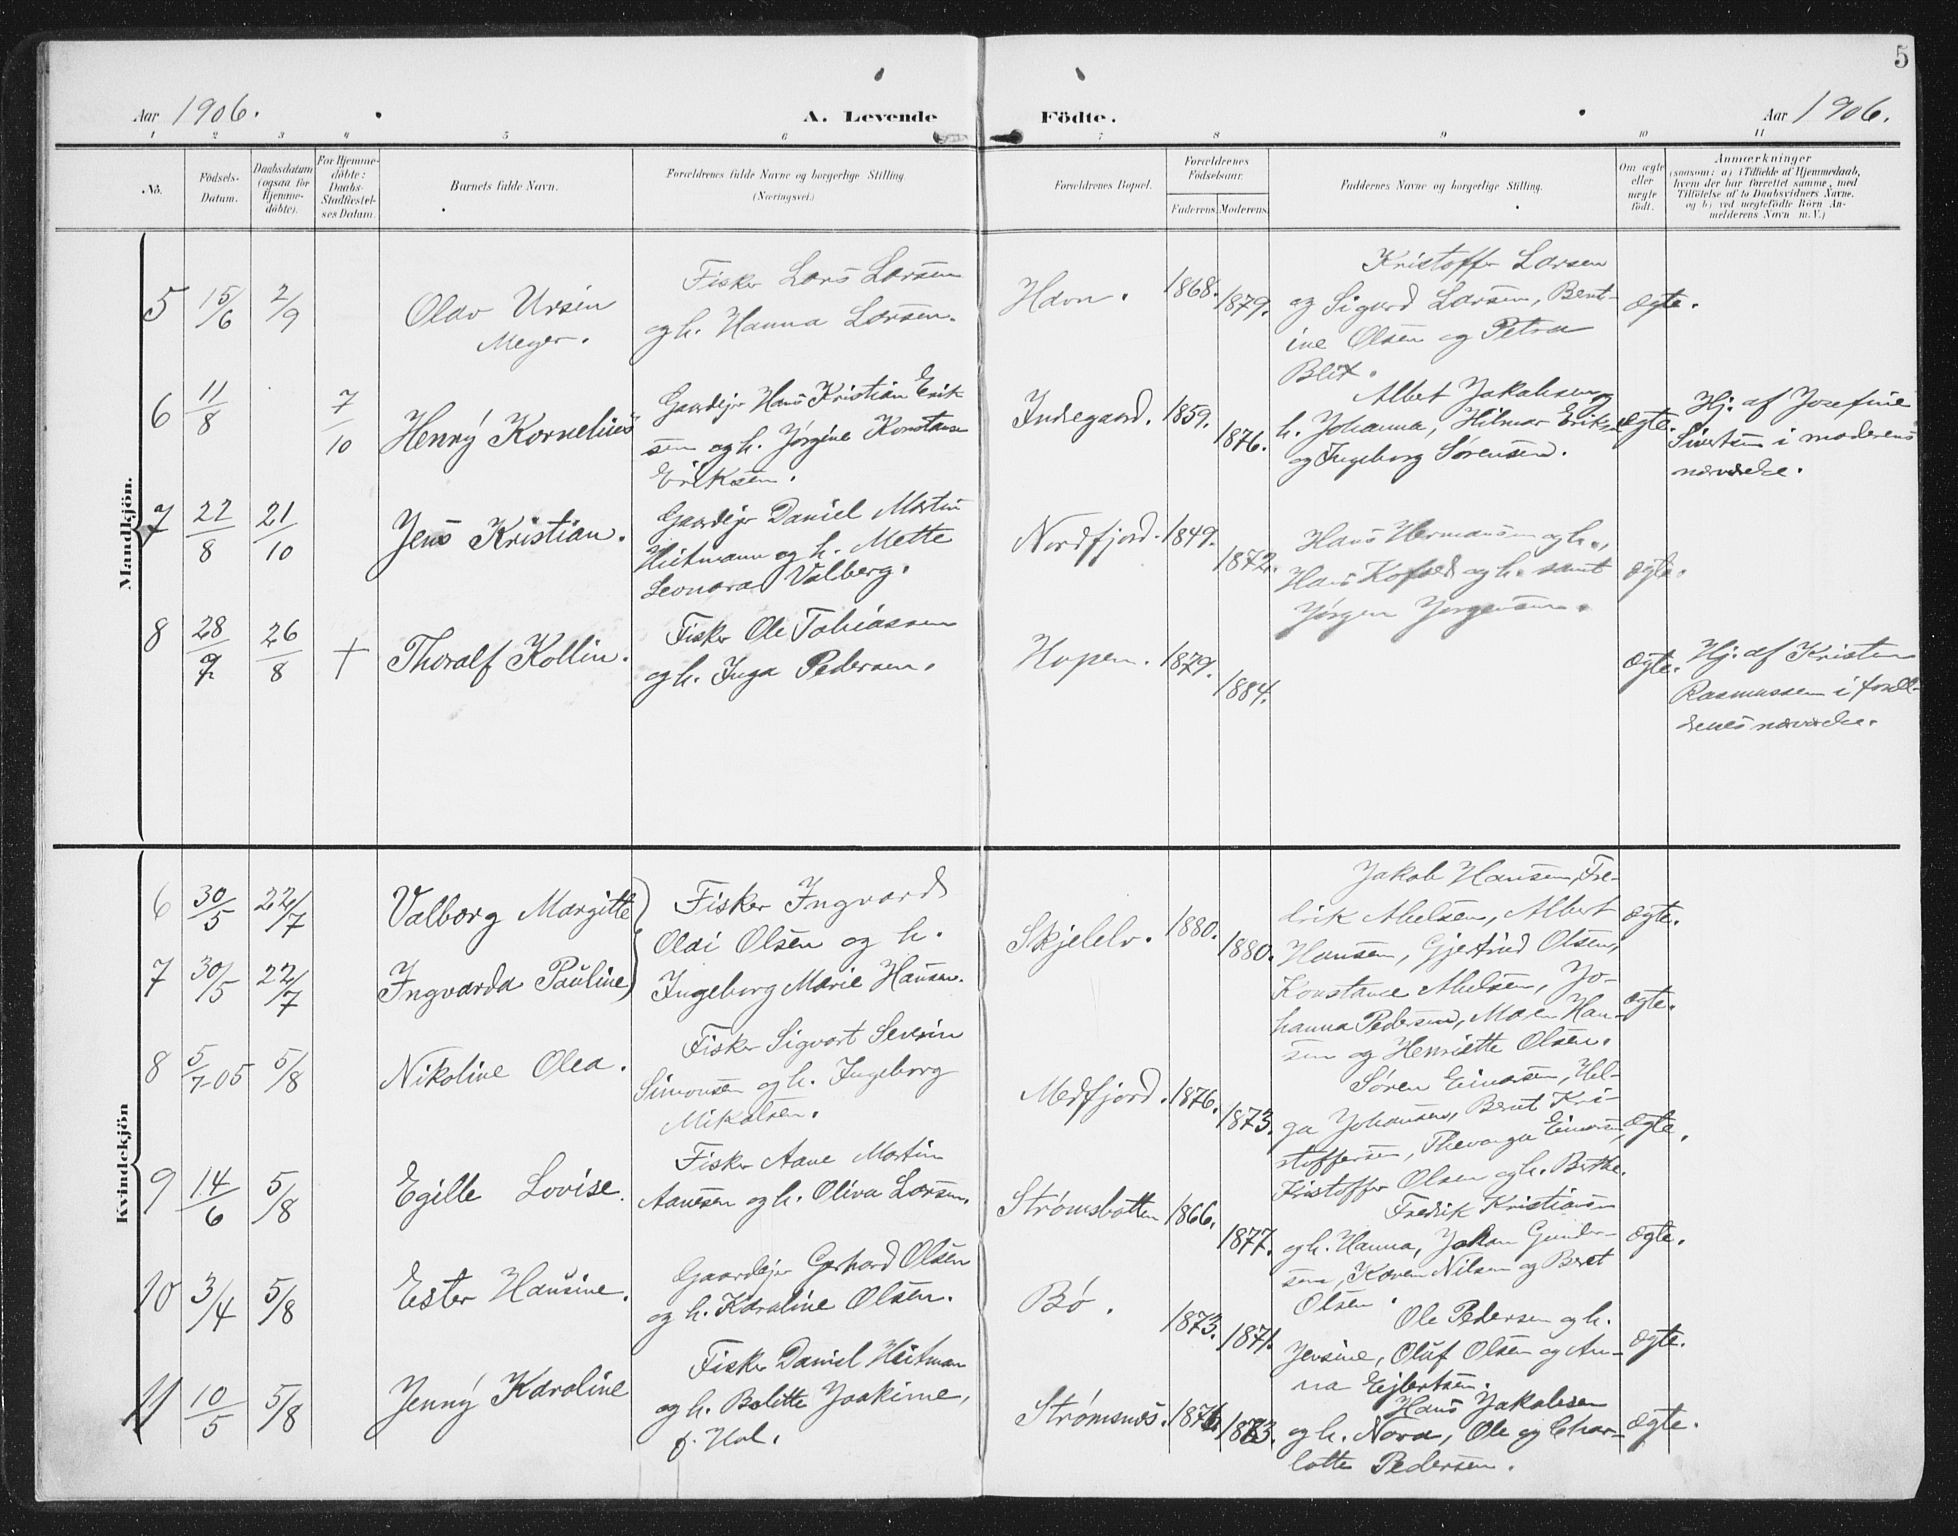 5
Aar 1906.
A. Levende Födte.
Aar 1906.
1 2 3 4 5 6 7 8 9 10 11
No.
Födsels-
Datum.
Daabsdatum
(ogsaa for
Hjemme-
döbte).
For Hjemme-
döbte:
Daabs-
Stadfæstel-
ses Datum.
Barnets fulde Navn.
Forældrenes fulde Navne og borgerlige Stilling
(Næringsvei.)
Forældrenes Bopæl.
Forældrenes
Födselsaar.
Faderens. Moderens.
Faddernes Navne og borgerlige Stilling.
Om ægte
eller
uægte
födt.
Anmærkninger
(saasom: a) i Tilfælde af Hjemmedaab,
hvem der har forrettet samme, med
Tilföielse af to Daabsvidners Navne,
og b) ved uægtefödte Börn An-
melderens Navn m. V.)
Mandkjön.
5 15/6 2/9
Olav Ursin
Meyer.
Fisker Lars Larsen
og h. Hanna Larsen.
Havn.
1868.
1879.
Kristoffer Larsen
og Sigurd Larsen, Bent-
ine Olsen og Petra
Blix.
Ægte.
6 11/8 7/10
Henrÿ Kornelius
Gaardejer Hans Kristian Erik
sen og h. Jørgine Konstanse
Eriksen.
Indregaard.
1859.
1876.
Albert Jakobsen og
h. Johanna, Hilmar Eriksen
og Ingeborg Sørensen.
Ægte.
Hj. af Josefine
Sivertsen i moderens
nærværelse.
7 22/8 21/10
Jens Kristian.
Gaardejer Daniel Martin
Heitmann og h. Mette
Leonora Valberg.
Nordfjord.
1849.
1872.
Hans Hermansen og h.,
Hans Kofoed og h. samt
Jørgen Jørgensen.
Ægte.
8 28/7 26/8 +
Thoralf Kollin.
Fisker Ole Tobiassen
og h. Inga Pedersen.
Hopen.
1879.
1884.
Ægte.
Hj. af Kristen
Rasmussen i foræl-
drenes nærværelse.
Kvindekjön
6 30/5 22/7
Valborg Margitte
7 30/5 22/7
Ingvarda Pauline
Fisker Ingvard
Oldi Olsen og h.
Ingeborg Marie Hansen.
Skjelelv.
1880.
1880.
Jakob Hansen, Fre-
drik Abelsen, Albert
Hansen, Gjertrud Olsen,
Konstance Abelsen, Jo-
hanna Pedersen, Maren Han-
sen og Henriette Olsen.
Ægte.
Ægte.
8 5/7-05 5/8
Nikoline Olea.
Fisker Sigvart Severin
Simonsen og h. Ingeborg
Mikalsen.
Medfjord.
1876.
1873.
Søren Einarsen, Hel-
ga Johansen, Berut Kri-
stoffersen, Einarsen,
Kristoffer Olsen og h. Berthe.
Ægte.
9 14/6 5/8
Egille Lovise.
Fisker Aane Martin
Aanesen og h. Oliva Larsen.
Strømsbotten
1866.
1877.
Fredrik Kristiansen
og h. Hanna, Johan Gunder-
sen, Karen Nilsen og Beret
Olsen.
Ægte.
10 3/4 5/8
Ester Hansine.
Gaardejer Gerhard Olsen
og h. Karoline Olsen.
Bø.
1873.
1871.
Ole Pedersen og h.
Jensine, Oluf Olsen og An-
na Ejlertsen.
Ægte.
11 10/5 5/8
Jennÿ Karoline
Fisker Daniel Heitman
og h. Bolette Joakime,
f. Hol.
Strømsnes.
1876.
1883.
Hans Jakobsen
og h. Nora, Ole og Char-
lotte Pedersen.
Ægte.